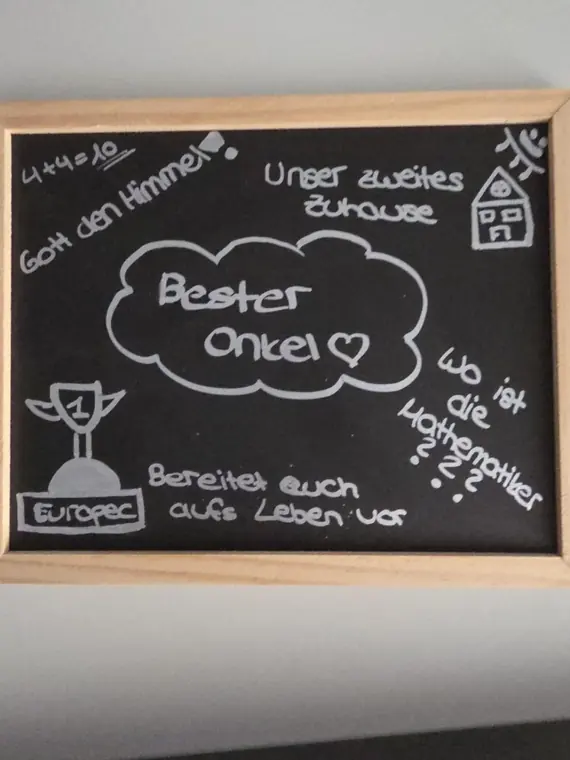 4+4=10
Gott den Himmel!
Unser zweites
Zuhause
Bester
Onkel ♡
Wo ist
die
Mathematiker
? ? ?
1
Europec
Bereitet euch
aufs Leben vor